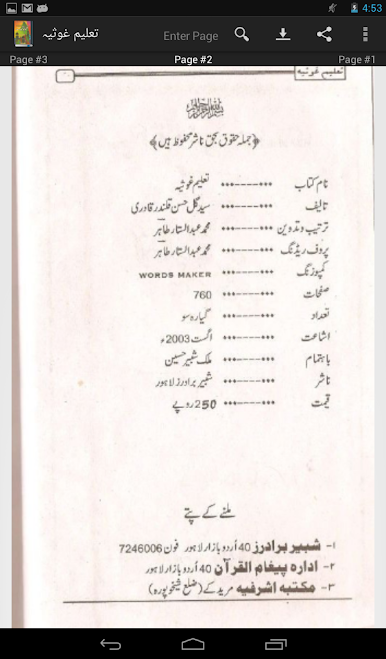 4:53
تعلیم غوثیہ
Enter Page
Page #3 Page #2 Page #1
تعلیم غوثیہ
﴿جملہ حقوق بحق ناشر محفوظ ہیں﴾
نام کتاب •••-----••• تعلیم غوثیہ
تالیف •••-----••• سید گل حسن قلندر قادری
ترتیب و تدوین •••-----••• محمد عبدالستار طاہر
پروف ریڈنگ •••-----••• محمد عبدالستار طاہر
کمپوزنگ •••-----••• WORDS MAKER
صفحات •••-----••• 760
تعداد •••-----••• گیارہ سو
اشاعت •••-----••• اگست 2003ء
باہتمام •••-----••• ملک شبیر حسین
ناشر •••-----••• شبیر برادرز لاہور
قیمت •••-----••• 250 روپے
ملنے کے پتے
۱- شبیر برادرز 40 اُردو بازار لاہور فون 7246006
۲- ادارہ پیغام القرآن 40 اُردو بازار لاہور
۳- مکتبہ اشرفیہ مریدکے (ضلع شیخوپورہ)